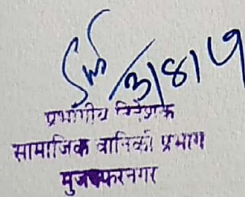 3/8/19
प्रभागीय निदेशक
सामाजिक वानिकी प्रभाग
मुजफ्फरनगर